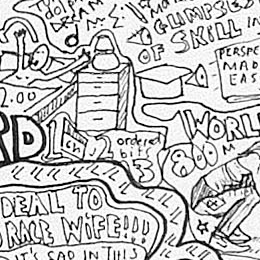 DREAM
GLIMPSES
OF SKILL IN
PERSPE
MAD
EAS
2.00
WORL
RD
1cm 2 ordered
bits
3
800M
DEAL TO
RACE WIFE!!!
IT'S SAD IN THIS